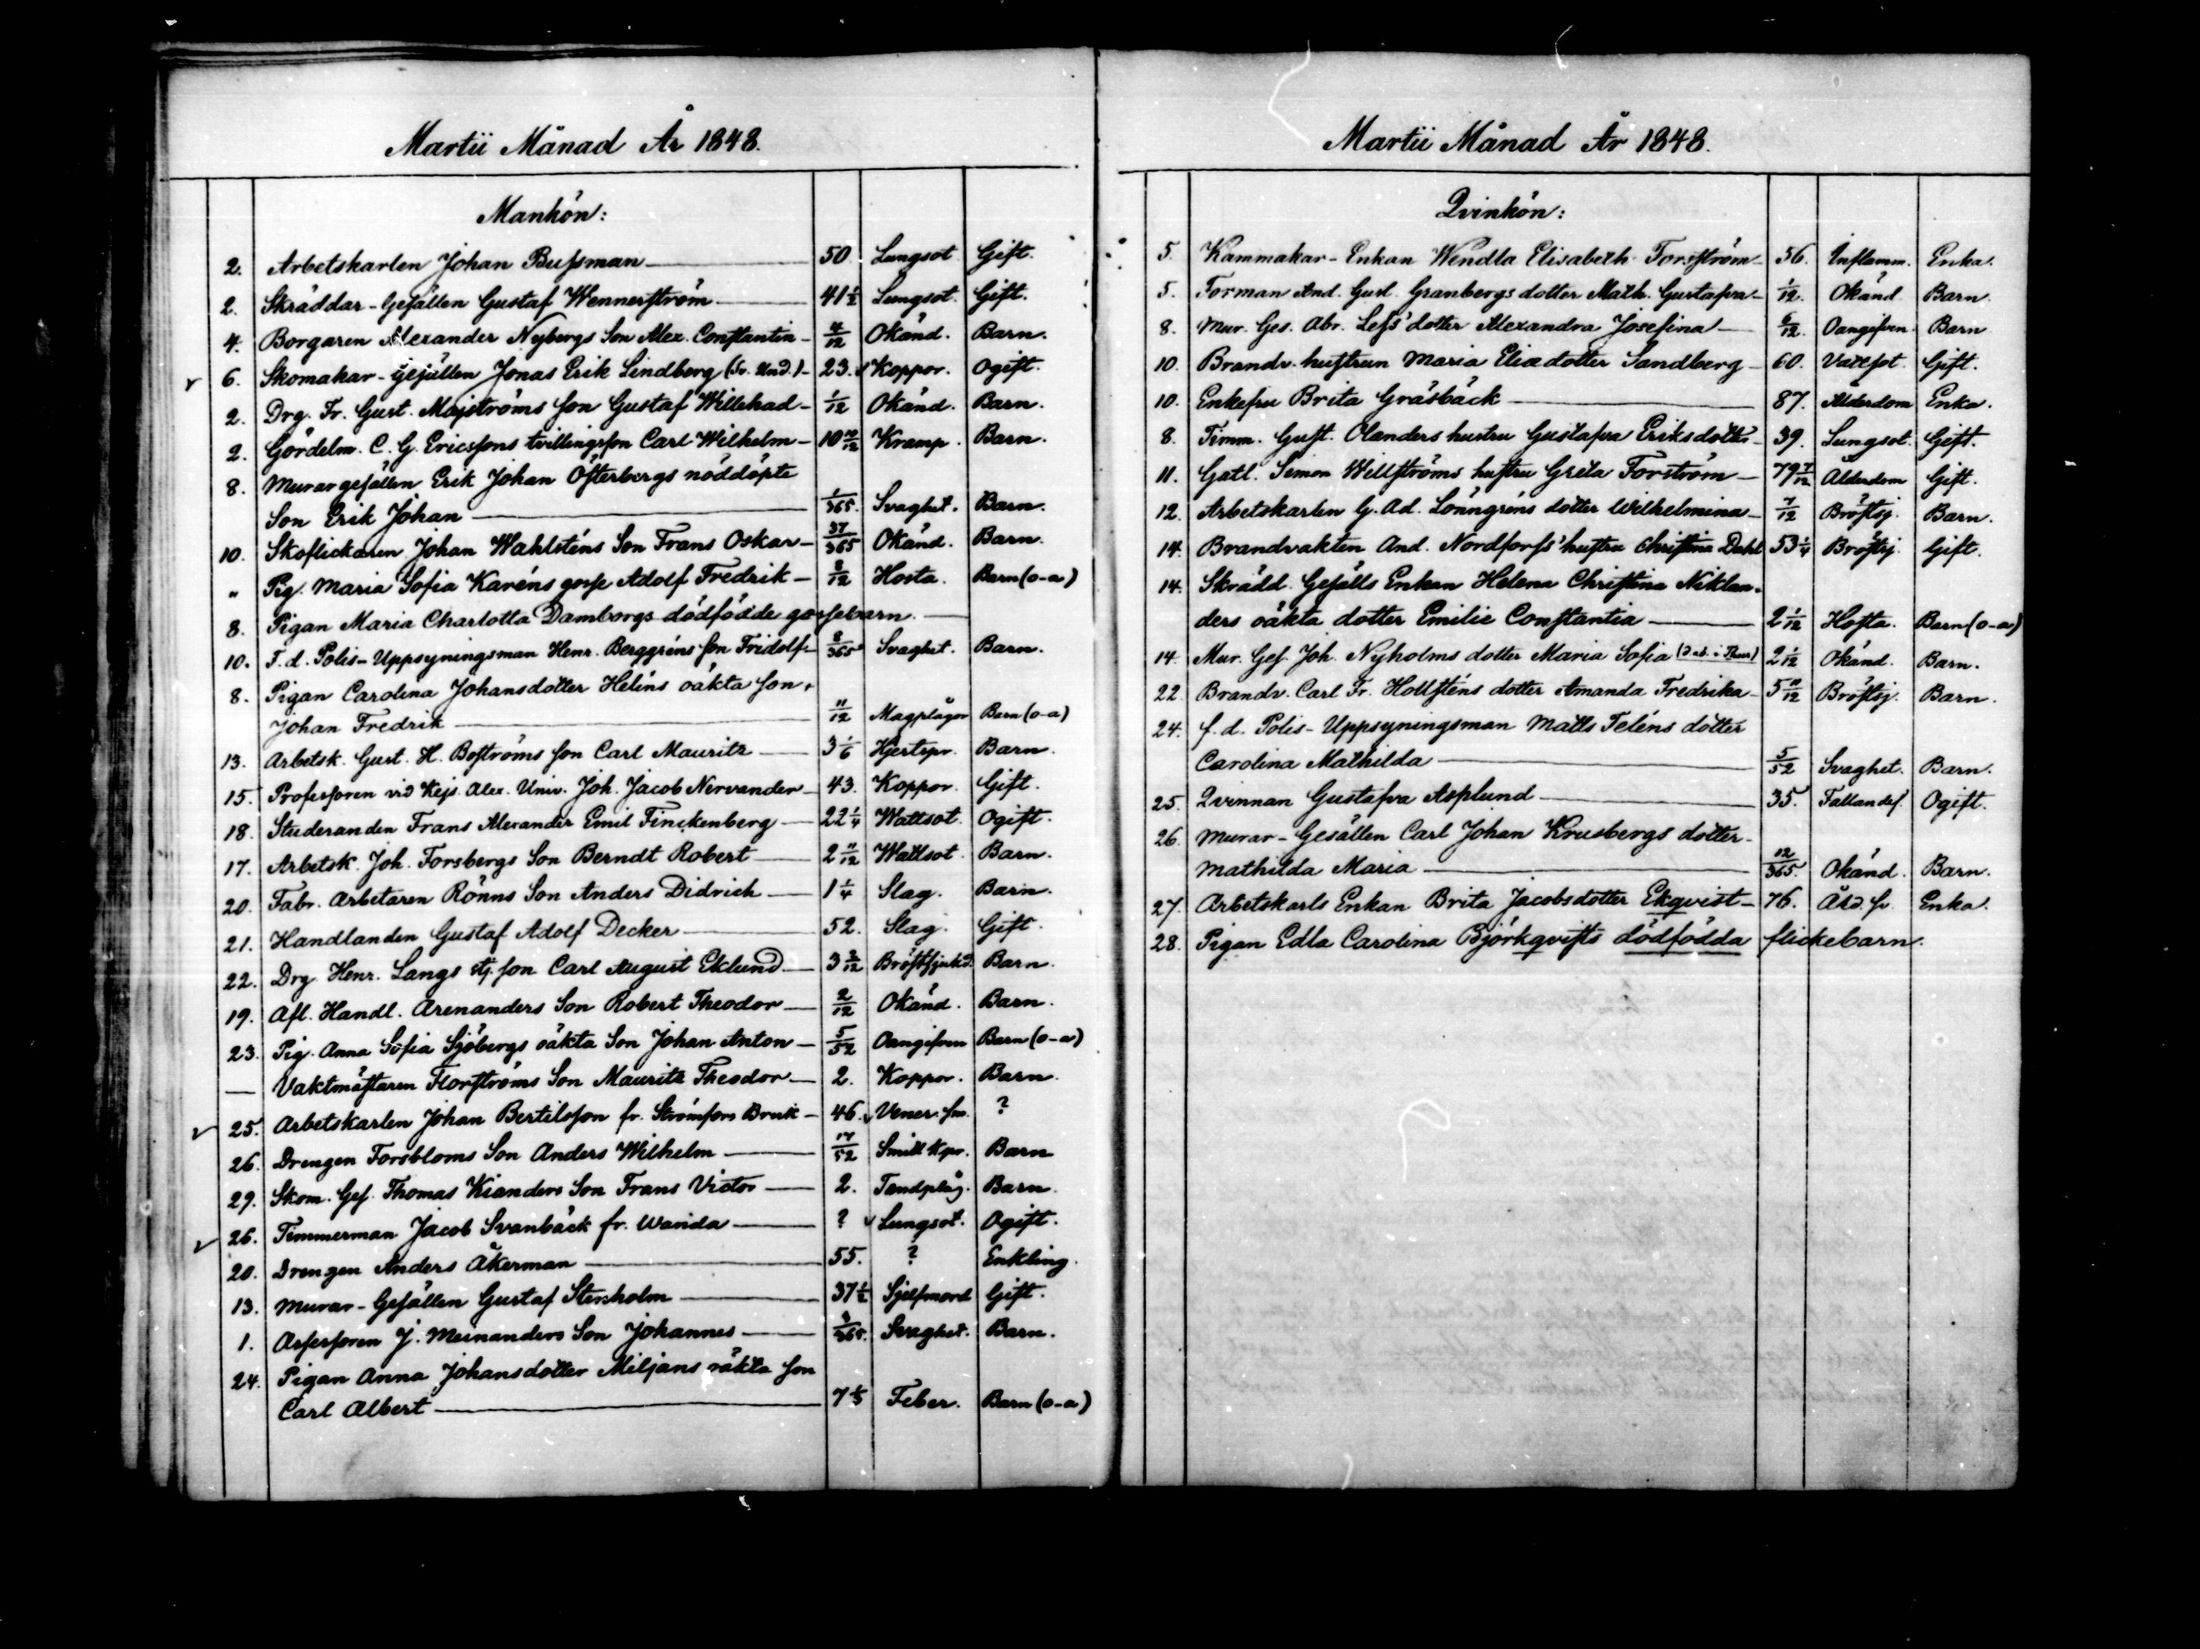 Martii Månad År 1848.
Mankön:
2. Arbetskarlen Johan Bussman 50 Lungsot Gift.
2. Skräddar-Gesällen Gustaf Wennerström 41 1/2 Lungsot. Gift.
4. Borgaren Alexander Nybergs Son Alex. Constantin 4/12 Okänd. Barn.
6. Skomakar-Gesällen Jonas Erik Lindberg (Sv. Und.) 23. Koppor. Ogift.
2. Drg. Fr. Gust. Majströms son Gustaf Willehad 1/12 Okänd. Barn.
2. Gördelm. C. G. Ericssons tvillingsson Carl Wilhelm 10 10/12 Kramp. Barn.
8. Murargesällen Erik Johan Österbergs nöddöpte
Son Erik Johan 1/365. Svaghet. Barn.
10. Skoflickaren Johan Wahlsténs Son Frans Oskar 37/365 Okänd. Barn.
" Pig. Maria Sofia Karéns gosse Adolf Fredrik 8/12 Hosta. Barn (o-a)
8. Pigan Maria Charlotta Damborgs dödfödde gossebarn.
10. F. d. Polis-Uppsyningsman Henr. Berggréns son Fridolf 8/365 Svaghet. Barn.
8. Pigan Carolina Johansdotter Heléns oäkta son,
Johan Fredrik 11/12 Magplågor Barn (o-a)
13. Arbetsk. Gust. H. Boströms son Carl Mauritz 3 1/6 Hjertspr. Barn.
15. Professoren vid Kejs. Alex. Univ. Joh. Jacob Nervander 43. Koppor. Gift.
18. Studeranden Frans Alexander Emil Finckenberg 22 1/4 Wattsot. Ogift.
17. Arbetsk. Joh. Forsbergs Son Berndt Robert 2 11/12 Wattsot. Barn.
20. Fabr. Arbetaren Rönns Son Anders Didrich 1 1/4 Slag. Barn.
21. Handlanden Gustaf Adolf Decker 52. Slag. Gift.
22. Drg. Henr. Langs stj. son Carl August Eklund 3 2/12 Bröstsjukd. Barn.
19. Afl. Handl. Arenanders Son Robert Theodor 2/12 Okänd. Barn.
23. Pig. Anna Sofia Sjöbergs oäkta Son Johan Anton 5/52 Oangifven Barn (o-a)
— Vaktmästaren Florströms Son Mauritz Theodor 2. Koppor. Barn.
25. Arbetskarlen Johan Bertilsson fr. Strömfors Bruk 46. Vener. sm. ?
26. Drengen Forsbloms Son Anders Wilhelm 17/52 Smitt kpr. Barn
29. Skom. Ges. Thomas Kianders Son Frans Victor 2. Tandplåg. Barn.
26. Timmerman Jacob Svanbäck fr. Wanda ? Lungsot. Ogift.
20. Drengen Anders Åkerman 55. ? Enkling.
13. Murar-Gesällen Gustaf Stenholm 37 1/2 Sjelfmord Gift.
1. Assessoren J. Meinanders Son Johannes 3/365. Svaghet. Barn.
24. Pigan Anna Johansdotter Miljans oäkta son
Carl Albert 7 1/3 Feber. Barn (o-a)
Martii Månad År 1848.
Qvinkön:
5. Kammakar-Enkan Wendla Elisabeth Forsström 56. Inflamm. Enka.
5. Forman And. Gust. Granbergs dotter Math. Gustafva 1/12. Okänd Barn.
8. Mur. Ges. Abr. Less' dotter Alexandra Josefina 6/12. Oangifven. Barn
10. Brandv. hustrun Maria Eliædotter Sandberg 60. Vattsot. Gift.
10. Enkefru Brita Gräsbäck 87. Ålderdom Enka.
8. Timm. Gust. Olanders hustru Gustafva Eriksdotter 39. Lungsot. Gift.
11. Gatl. Simon Willströms hustru Greta Forström 79 7/12 Ålderdom Gift.
12. Arbetskarlen G. Ad. Lönngréns dotter Wilhelmina 7/12 Bröstsj. Barn.
14. Brandvakten And. Nordfors' hustru Christina Dahl 53 1/4 Bröstsj. Gift.
14. Skrädd. Gesälls Enkan Helena Christina Niklan-
ders oäkta dotter Emilie Constantia 2 1/12 Hosta. Barn (o-a)
14. Mur. Ges. Joh. Nyholms dotter Maria Sofia 2 1/12 Okänd. Barn.
22. Brandv. Carl Fr. Hollsténs dotter Amanda Fredrika 5 11/12 Bröstsj. Barn.
24. f. d. Polis-Uppsyningsman Matts Teléns dotter
Carolina Mathilda 5/52 Svaghet. Barn.
25. Qvinnan Gustafva Asplund 35. Fallandes. Ogift.
26. Murar-Gesällen Carl Johan Krusbergs dotter
Mathilda Maria 12/365. Okänd. Barn.
27. Arbetskarls Enkan Brita Jacobsdotter Ekqvist 76. Åld. sv. Enka.
28. Pigan Edla Carolina Björkqvists dödfödda flickebarn.